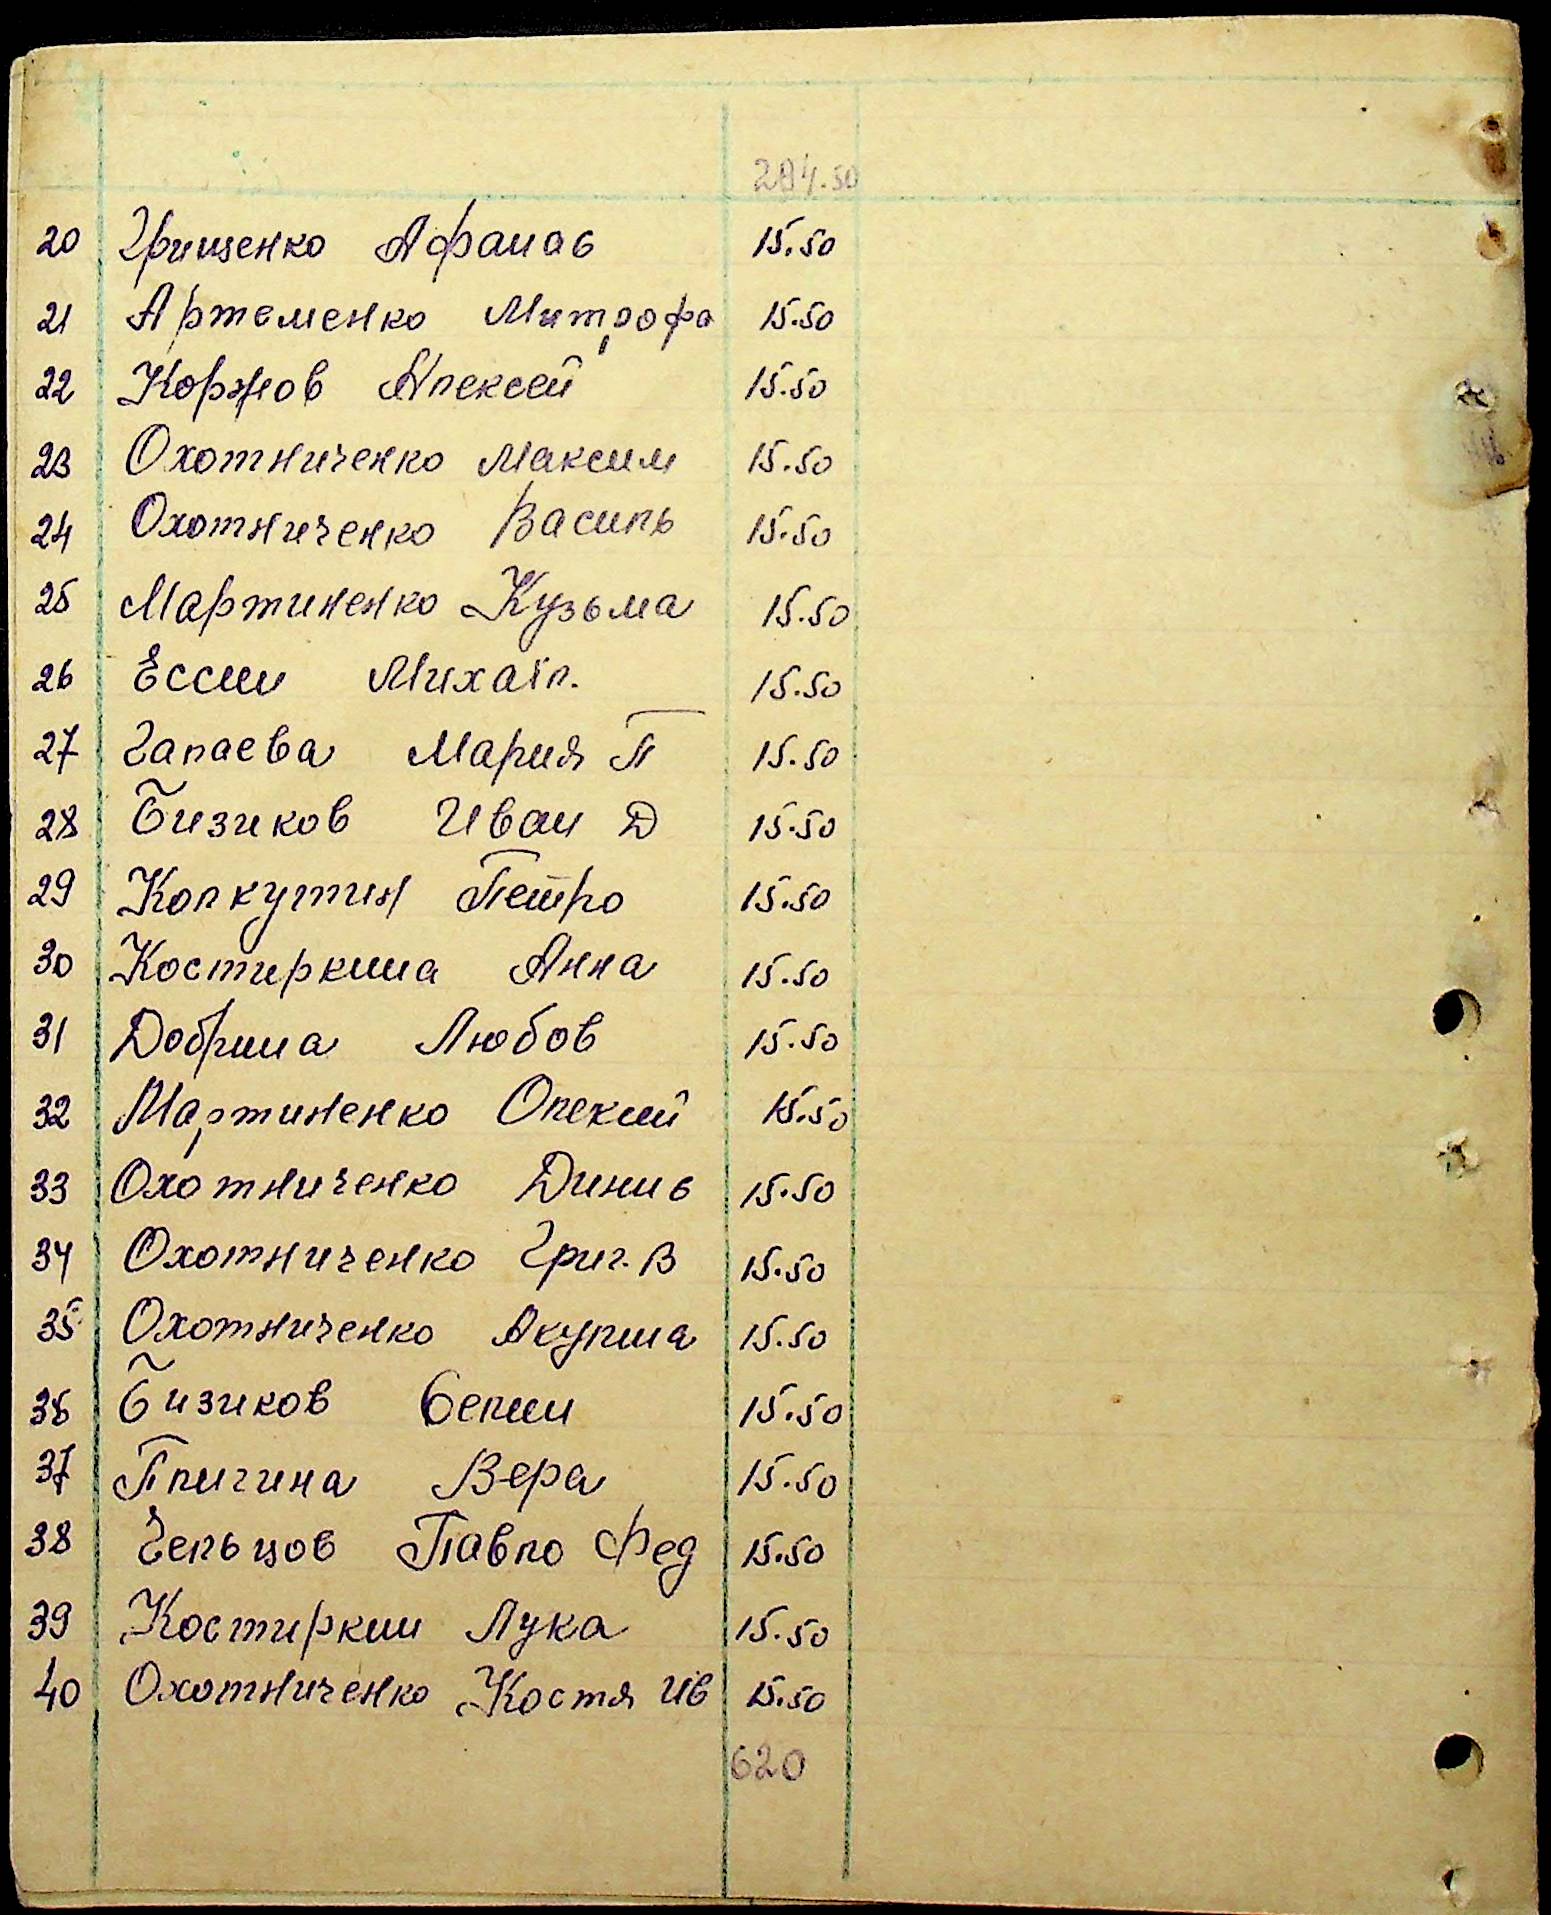 294.50
20 Грищенко Афанас 15.50
21 Артеменко Митрофа 15.50
22 Коржов Алексей 15.50
23 Охотниченко Максим 15.50
24 Охотниченко Василь 15.50
25 Мартиненко Кузьма 15.50
26 Ессин Михаіл. 15.50
27 Чапаева Мария П 15.50
28 Бизиков Иван Д 15.50
29 Колкутин Петро 15.50
30 Костиркина Анна 15.50
31 Добрина Любов 15.50
32 Мартиненко Олексий 15.50
33 Охотниченко Динис 15.50
34 Охотниченко Григ. В 15.50
35 Охотниченко Акулина 15.50
36 Бизиков 15.50
37 Пличина Вера 15.50
38 Чельцов Павло Фед 15.50
39 Костиркин Лука 15.50
40 Охотниченко Костя Ив 15.50
620